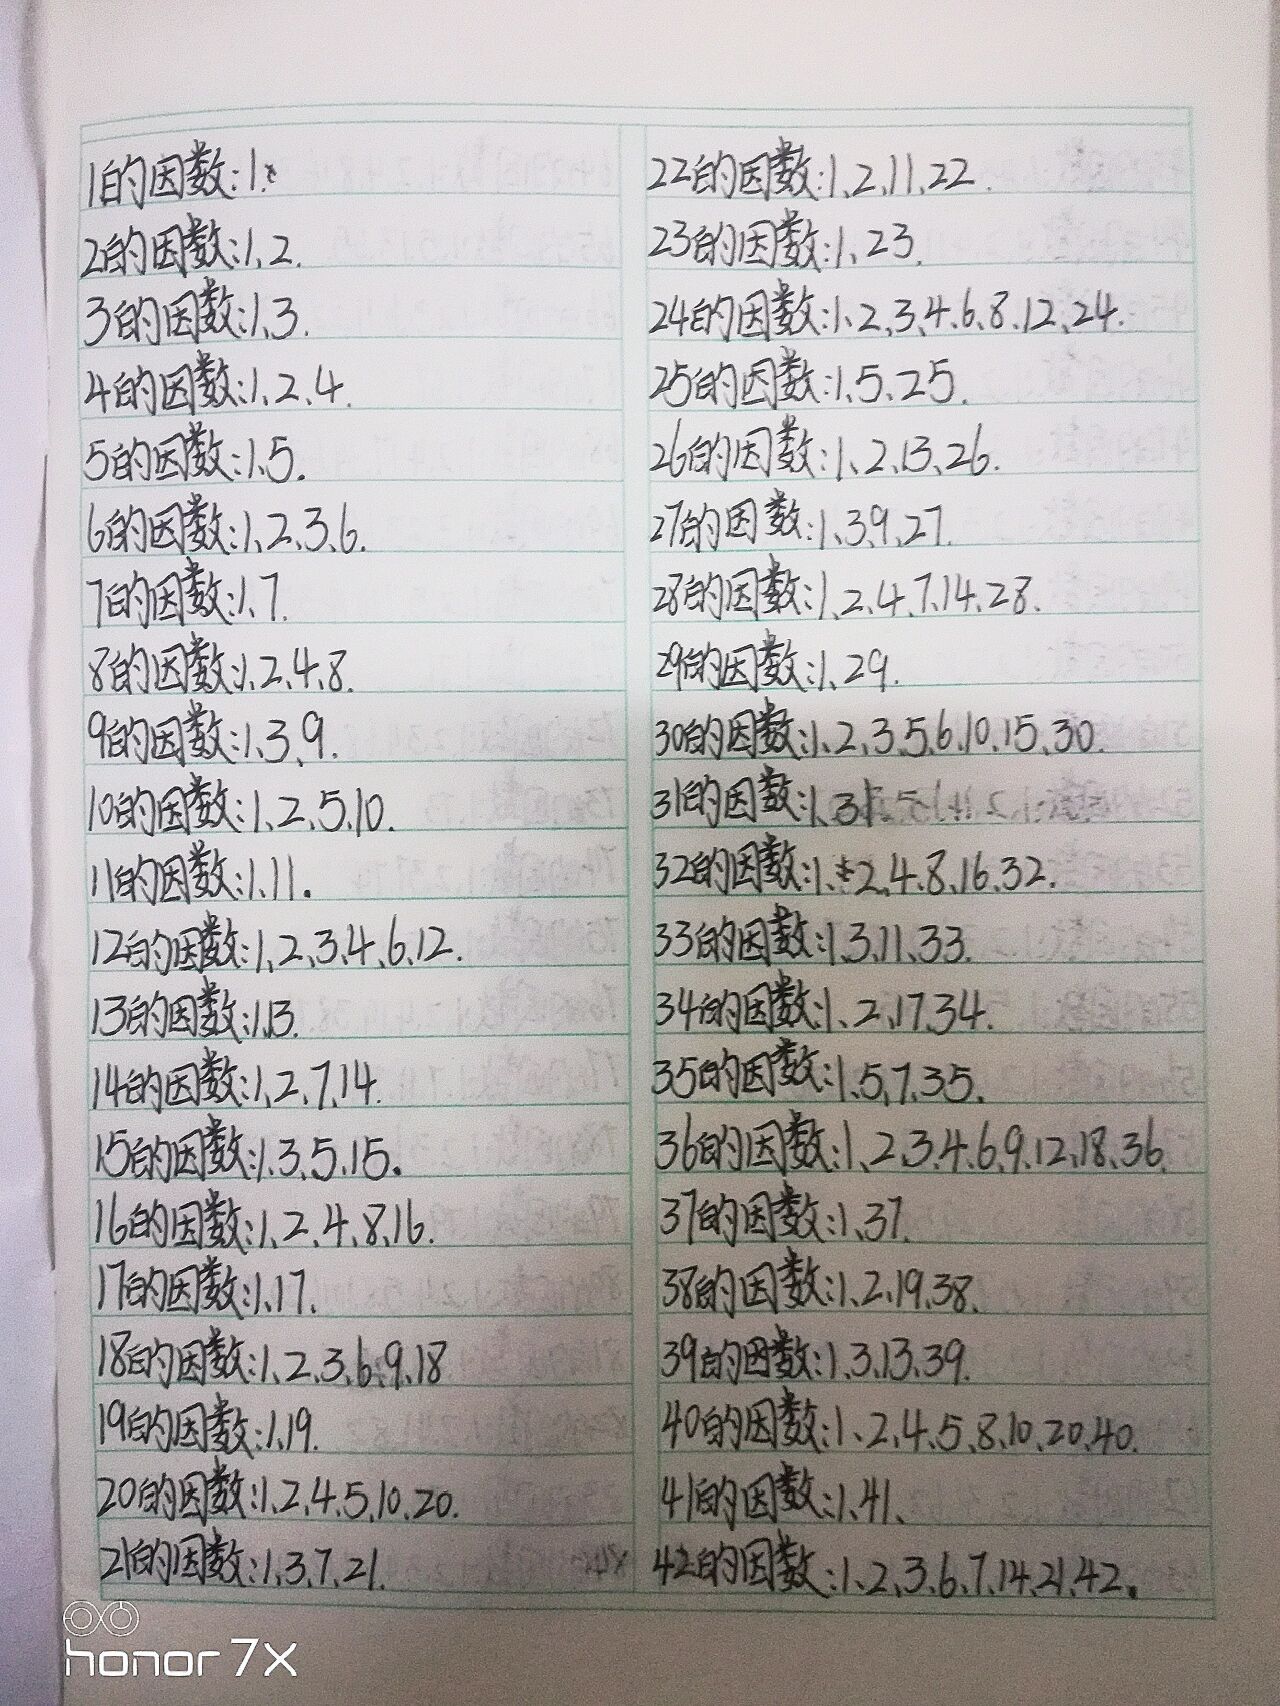 1的因数:1.
2的因数:1、2.
3的因数:1、3.
4的因数:1、2、4.
5的因数:1、5.
6的因数:1、2、3、6.
7的因数:1、7.
8的因数:1、2、4、8.
9的因数:1、3、9.
10的因数:1、2、5、10.
11的因数:1、11.
12的因数:1、2、3、4、6、12.
13的因数:1、13.
14的因数:1、2、7、14.
15的因数:1、3、5、15.
16的因数:1、2、4、8、16.
17的因数:1、17.
18的因数:1、2、3、6、9、18
19的因数:1、19.
20的因数:1、2、4、5、10、20.
21的因数:1、3、7、21.
22的因数:1、2、11、22.
23的因数:1、23.
24的因数:1、2、3、4、6、8、12、24.
25的因数:1、5、25.
26的因数:1、2、13、26.
27的因数:1、3、9、27.
28的因数:1、2、4、7、14、28.
29的因数:1、29.
30的因数:1、2、3、5、6、10、15、30.
31的因数:1、31.
32的因数:1、2、4、8、16、32.
33的因数:1、3、11、33.
34的因数:1、2、17、34.
35的因数:1、5、7、35.
36的因数:1、2、3、4、6、9、12、18、36.
37的因数:1、37.
38的因数:1、2、19、38.
39的因数:1、3、13、39.
40的因数:1、2、4、5、8、10、20、40.
41的因数:1、41、
42的因数:1、2、3、6、7、14、21、42.
honor 7X